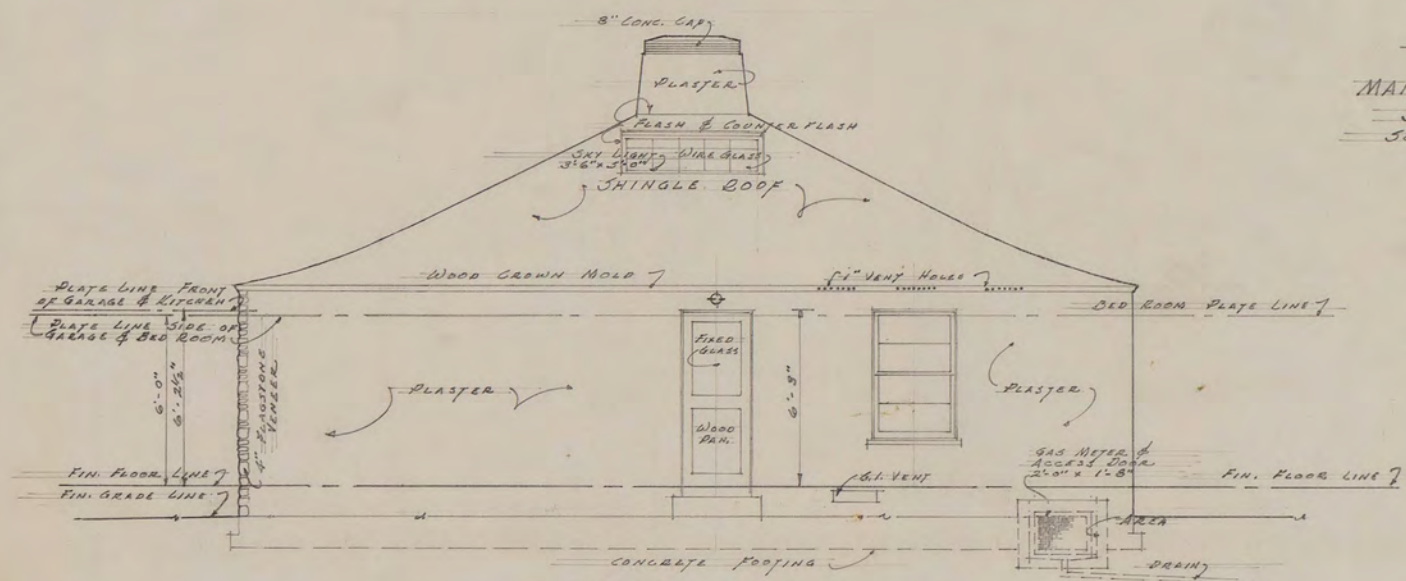 8" CONC. CAP
PLASTER
FLASH & COUNTER FLASH
SKY LIGHT
3'-6" x 5'-0"
WIRE GLASS
SHINGLE ROOF
WOOD CROWN MOLD
1" VENT HOLES
PLATE LINE FRONT
OF GARAGE & KITCHEN
PLATE LINE SIDE OF
GARAGE & BED ROOM
BED ROOM PLATE LINE
6'-0"
6'-2½"
4" FLAGSTONE
VENEER
PLASTER
FIXED
GLASS
WOOD
PAN.
PLASTER
GAS METER &
ACCESS DOOR
2'-0" x 1'-8"
FIN. FLOOR LINE
FIN. GRADE LINE
G.I. VENT
FIN. FLOOR LINE
AREA
CONCRETE FOOTING
DRAIN